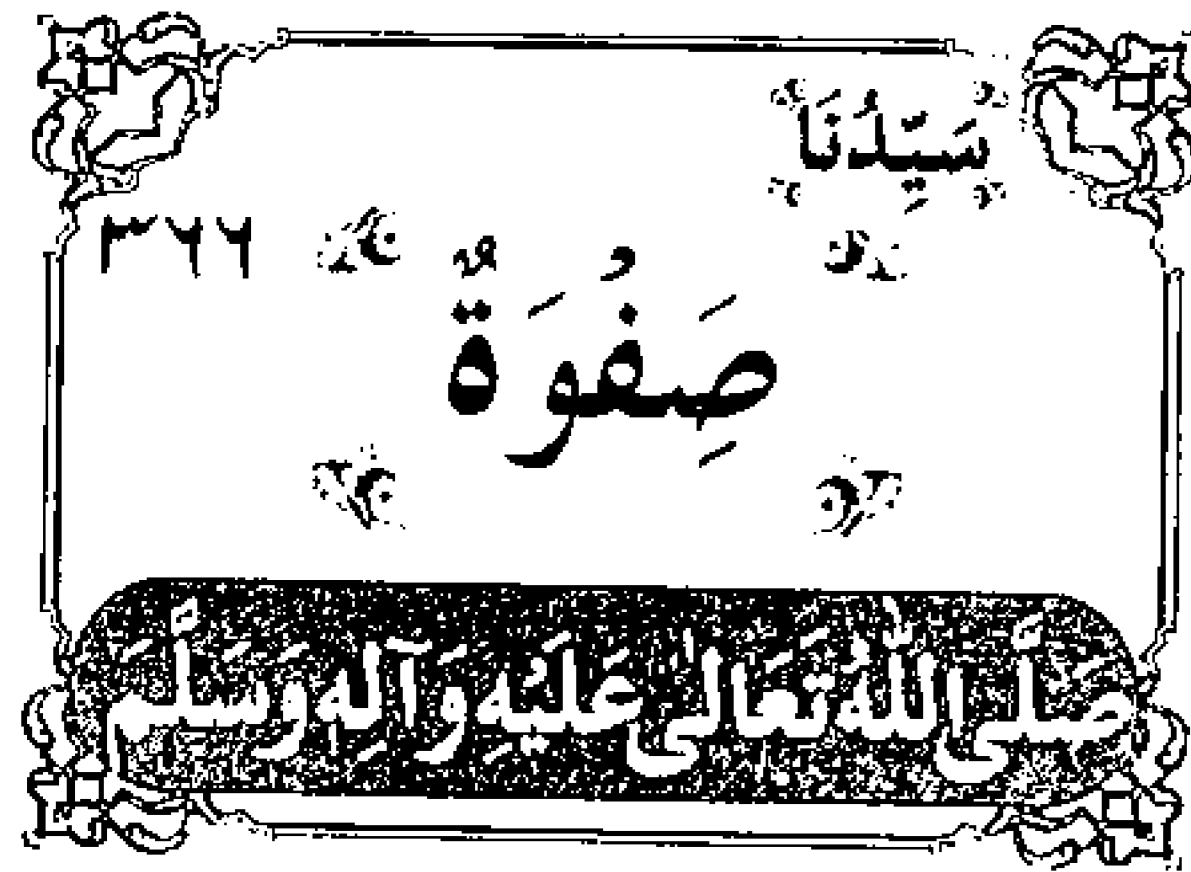 سَيِّدُنَا
٣٦٦
صَِفْوَةٌ
صَلَّى اللّٰهُ تَعَالٰى عَلَيْهِ وَآلِهِ وَسَلَّمَ